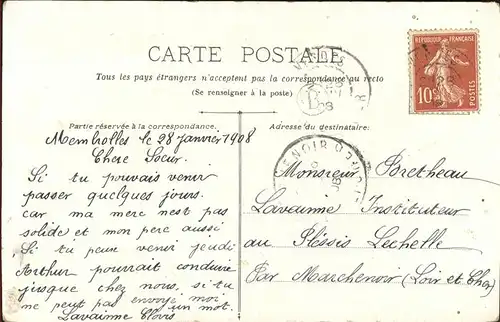 CARTE POSTALE
Tous les pays étrangers n'acceptent pas la correspondance au recto
(Se renseigner à la poste)
RÉPUBLIQUE FRANÇAISE
10c
POSTES
Partie réservée à la correspondance.
Adresse du destinataire:
Membrolles le 28 janvier 1908
Chere Sœur.
Si tu pouvais venir
passer quelques jours.
car ma mere nest pas
solide et mon pere aussi
Si tu peux venir jeudi
Arthur pourrait conduire
jusque chez nous, si tu
ne peut pas envoye moi
un mot.
Lavainne Clovis
Monsieur Bretheau
Lavainne Instituteur
au Pléssis Lechelle
Par Marchenoir (Loir et Cher)